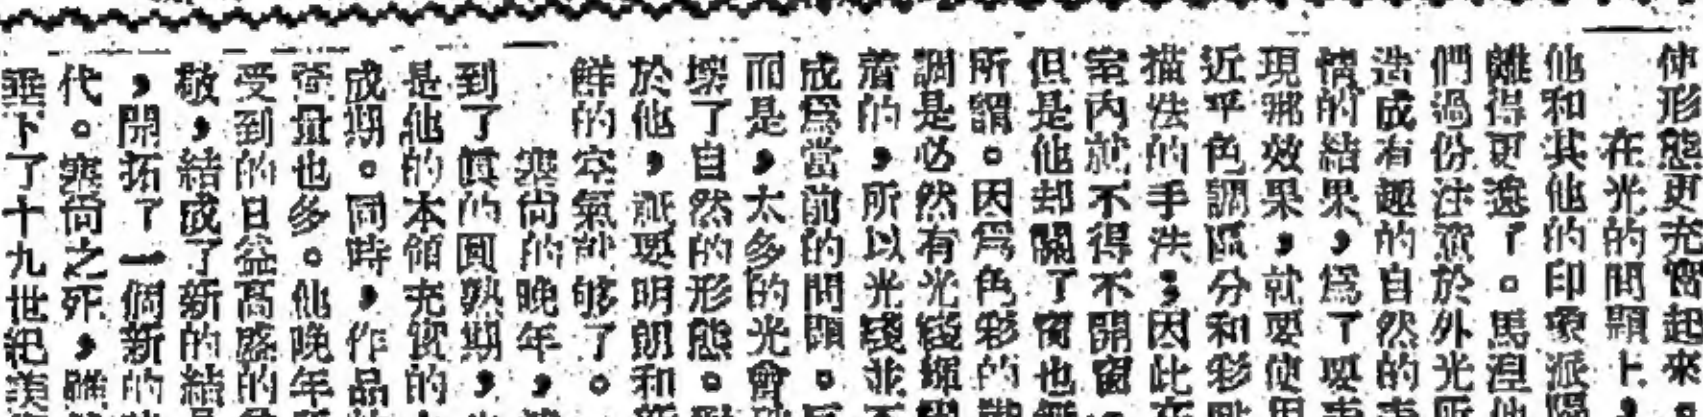 使形態更充實起來。
在光的問題上，
他和其他的印象派
離得更遠了。馬湼他
們過份注意於外光
造成有趣的自然的
情的結果，爲了要
現那效果，就要使用
近乎色調區分和彩
描法的手法；因此
室內就不得不開窗
但是他却關了窗也
所謂。因爲色彩的
調是必然有光綫
着的，所以光綫並不
成爲當前的問題。
而是，太多的光會
壞了自然的形態。
於他，祇要明朗和
鮮的空氣就够了。
塞尚的晚年，
到了眞的圓熟期，
是他的本領充實的
成期。同時，作品
量也多。他晚年
受到的日益高盛的
敬，結成了新的結
，開拓了一個新的
代。塞尚之死，
垂下了十九世紀美